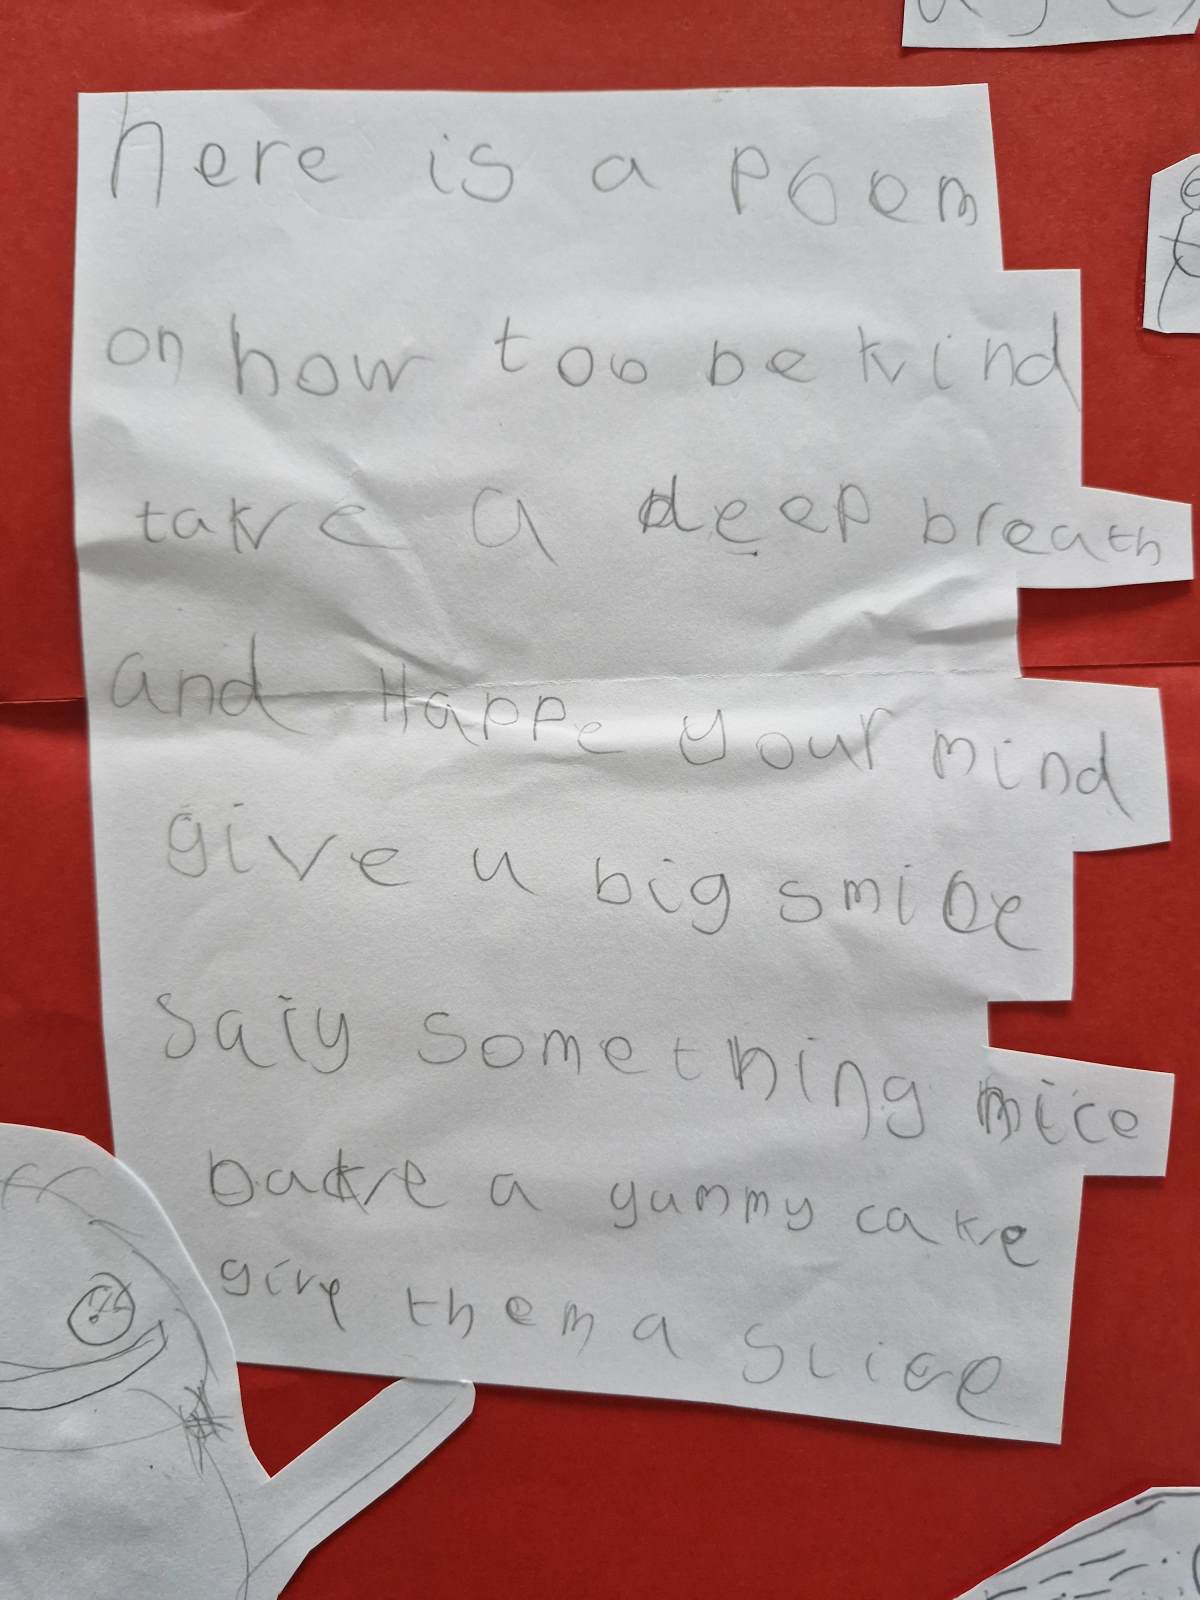 here is a poem
on how too be kind
take a deep breath
and Happe your mind
give a big smile
saiy something nice
bake a yummy cake
give them a slice